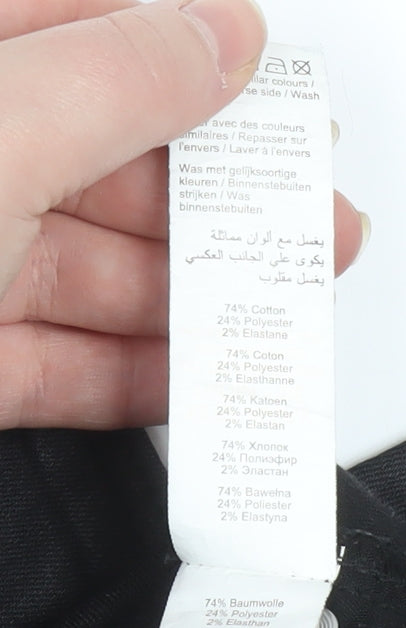 colours /
side / Wash
avec des couleurs
similaires / Repasser sur
l'envers / Laver à l'envers
Was met gelijksoortige
kleuren / Binnenstebuiten
strijken / Was
binnenstebuiten
يغسل مع ألوان مماثلة
يكوى على الجانب العكسي
يغسل مقلوب
74% Cotton
24% Polyester
2% Elastane
74% Coton
24% Polyester
2% Elasthanne
74% Katoen
24% Polyester
2% Elastan
74% Хлопок
24% Полиэфир
2% Эластан
74% Bawełna
24% Poliester
2% Elastyna
74% Baumwolle
24% Polyester
2% Elasthan